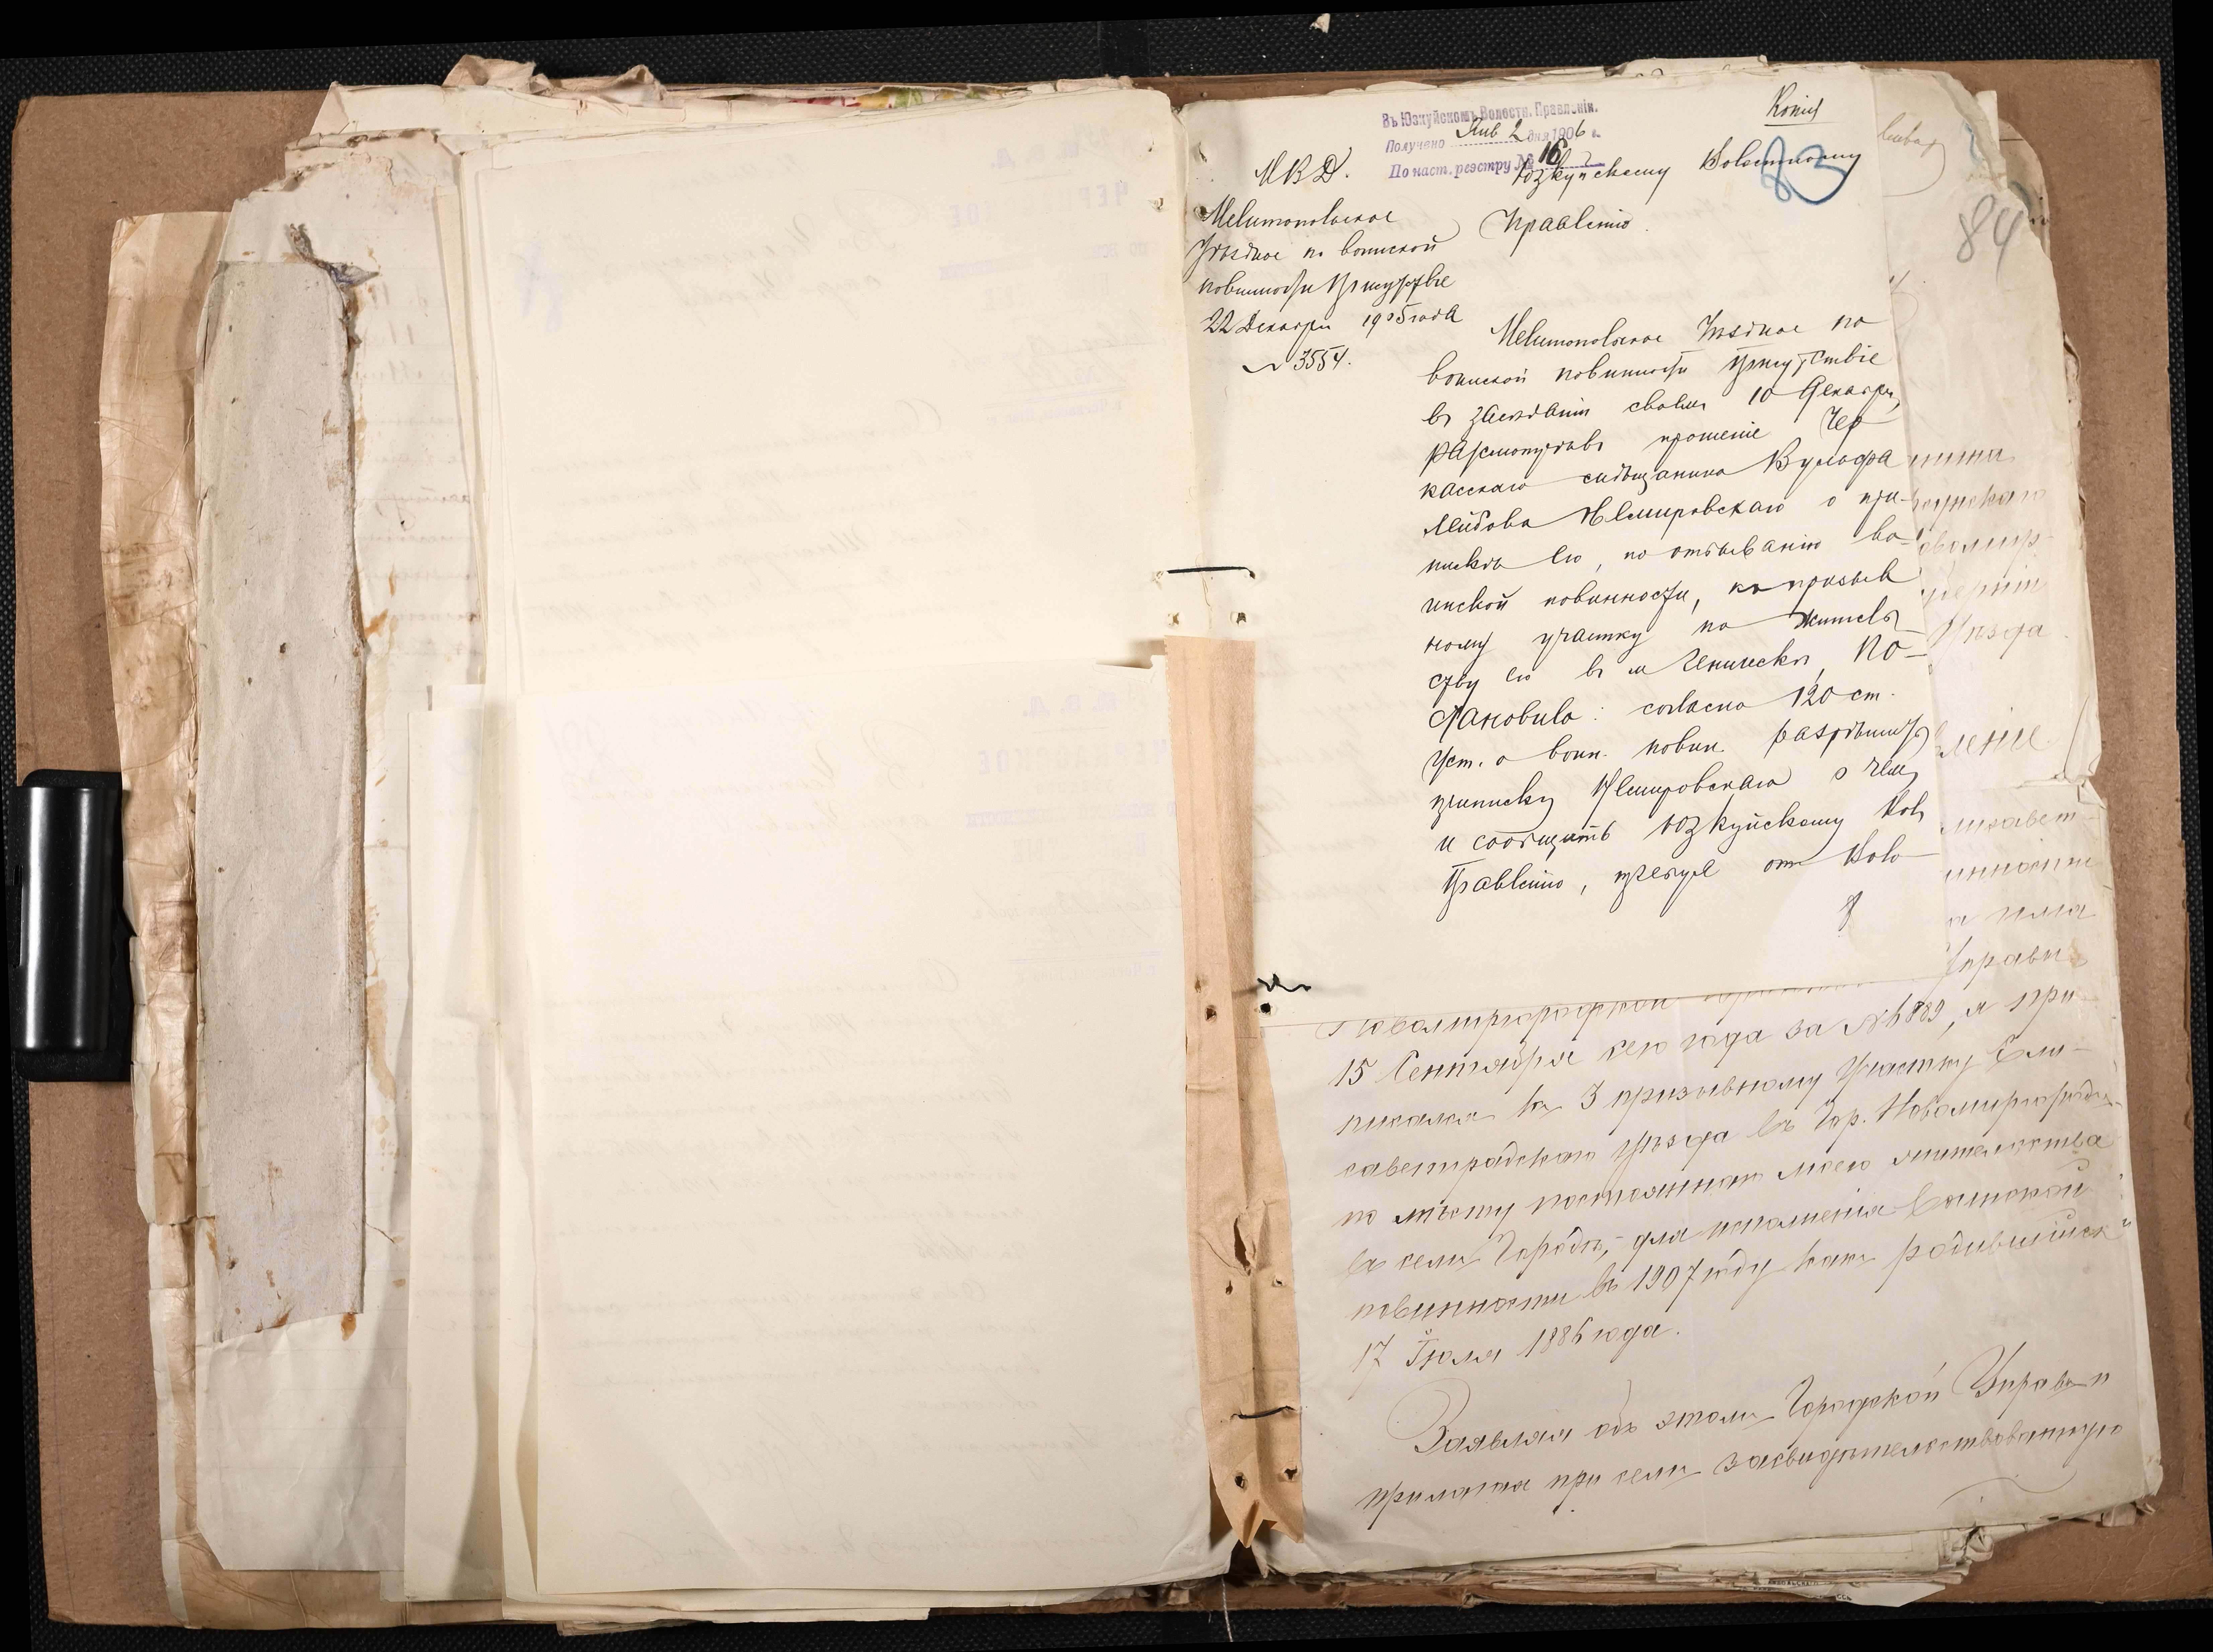 Копія
Въ Юзкуйскомъ Волостн. Правленіи.
Получено Янв 2 дня 1906 г.
По наст. реэстру № 16
83
84
М В Д.
Мелитопольское
Уѣздное по воинской
повинности Присутствіе
22 Декабря 1905 года
№ 3554.
Юзкуйскому Волостному
Правленію.
Мелитопольское Уѣздное по
воинской повинности Присутствіе
въ засѣданіи своемъ 10 Декабря,
разсмотрѣвъ прошеніе Чер
касскаго мѣщанина Вульфа
Лейбова Немировскаго о при-
пискѣ его, по отбыванію во-
инской повинности, къ призыв
ному участку по житель
ству его въ м Геническѣ, По-
становило: согласно 120 ст.
Уст. о воин. повин. разрѣшить
приписку Немировскаго о чемъ
и сообщить Юзкуйскому Вол
Правленію, требуя отъ Воло-
леніе
лизавет-
инности
Управы
15 Сентября сего года за № 6889, я при-
писался къ 3 призывному Участку Ели-
саветградскаго Уѣзда въ Гор. Новомиргородѣ
по мѣсту постояннаго моего жительства
въ семъ Городѣ, для исполненія воинской
повинности въ 1907 году какъ родившійся
17 Іюля 1886 года.
Заявляя объ этомъ Городской Управѣ и
прилагая при семъ засвидѣтельствованную